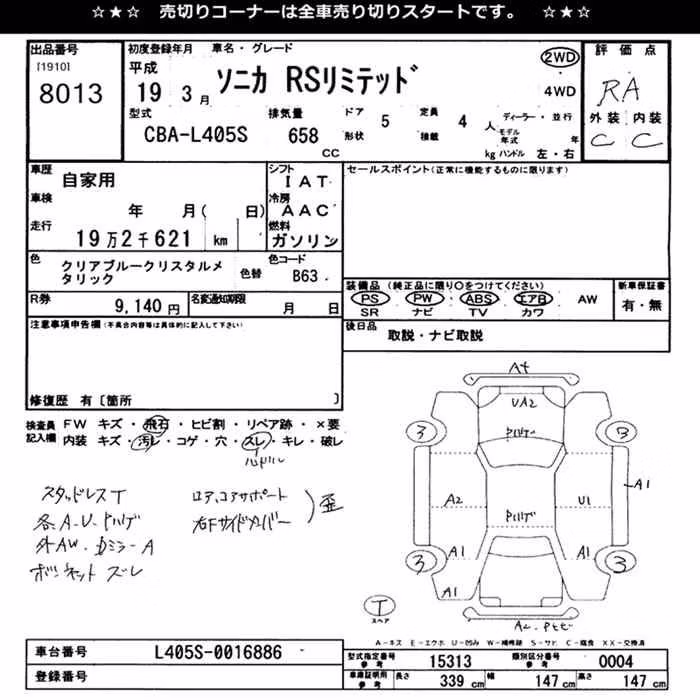 ☆★☆ 売切りコーナーは全車売り切りスタートです。 ☆★☆
出品番号
[1910]
8013
初度登録年月 車名・グレード
平成
19 3 月
ソニカ RSリミテッド
2WD
4WD
型式
CBA-L405S
排気量
658
CC
ドア
形状
5
定員
積載
4
人
kg
ディーラー・並行
モデル
年式
年
ハンドル 左・右
評価点
RA
外装 内装
C C
車歴
自家用
車検
年 月( 日)
走行
19万2千621 km
シフト
IAT
冷房
AAC
燃料
ガソリン
色
クリアブルークリスタルメ
タリック
色替
色コード
B63
R券
9,140 円
名変通知期限
月 日
セールスポイント(正常に機能するものに限ります)
装備品 (純正品に限り○をつけてください)
PS・PW・ABS・エアB・AW
SR ナビ TV カワ
新車保証書
有・無
後日品
取説・ナビ取説
注意事項申告欄(不具合内容等は具体的に記入して下さい)
修復歴 有〔箇所 〕
検査員
記入欄
FW キズ・飛石・ヒビ割・リペア跡・×要
内装 キズ・汚レ・コゲ・穴・スレ・キレ・破レ
ハンドル
スタッドレスT
各A-U-ドルノデ
外AW
ミラーA
ボンネット ズレ
ロア、コアサポート
右Fサイドメンバー
歪
A4
UA2
3
3
A2
U1
A1
A1
A1
3
3
A1
T
スペア
A-キズ E-エクボ U-凹み W-補修跡 S-サビ C-腐食 XX-交換済
車台番号
L405S-0016886
登録番号
型式指定番号
参考
15313
類別区分番号
参考
0004
車庫証明用
参考
長さ
339 cm
幅
147 cm
高さ
147 cm